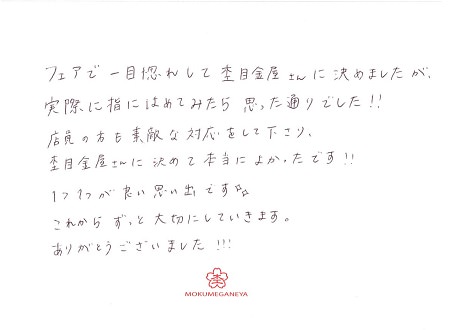 フェアで一目惚れして杢目金屋さんに決めましたが、
実際に指にはめてみたら思った通りでした!!
店員の方も素敵な対応をして下さり、
杢目金屋さんに決めて本当によかったです!!
1つ1つが良い思い出です✨
これからずっと大切にしていきます。
ありがとうございました!!!
杢
MOKUMEGANEYA